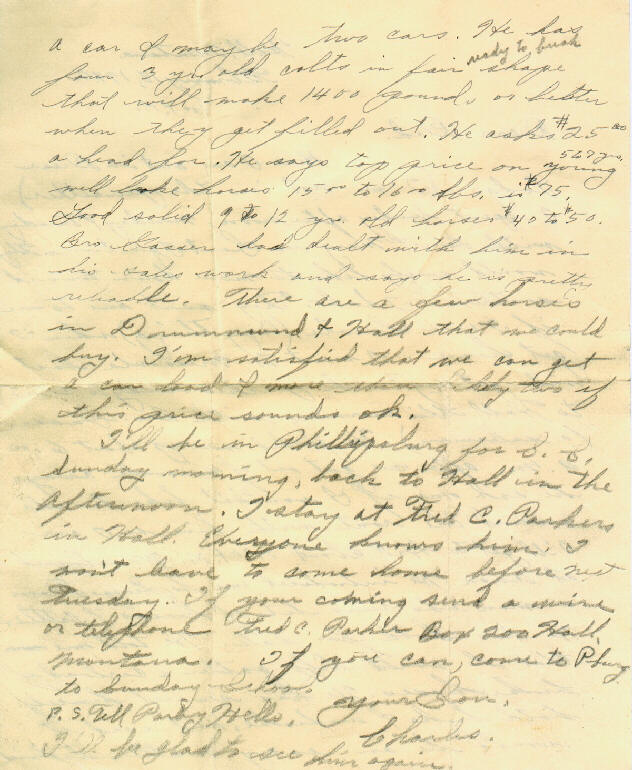 a car & may be two cars. He has
ready to break
four 3 yr old colts in fair shape
that will make 1400 pounds or better
when they get filled out. He asks $25 00
a head for. He says top price on young
5 & 7 yrs,
well broke horses 1500 to 1600 lbs. is $75.
Good solid 9 to 12 yr. old horses $40 to $50.
Bro Gasser had dealt with him in
his sales work and says he is pretty
reliable. There are a few horses
in Drummond & Hall that we could
buy. I'm satisfied that we can get
a car load & more than likely two if
this price sounds ok.
I'll be in Phillipsburg for S. S.
Sunday morning, back to Hall in the
afternoon. I stay at Fred C. Parkers
in Hall. Everyone knows him. I
won't leave to come home before next
Tuesday. If your coming send a wire
or telephone Fred C. Parker Box 200 Hall,
Montana. If you can, come to P'burg
to Sunday School.
Your Son,
Charles.
P.S. Tell Parley Hello.
I'll be glad to see him again.